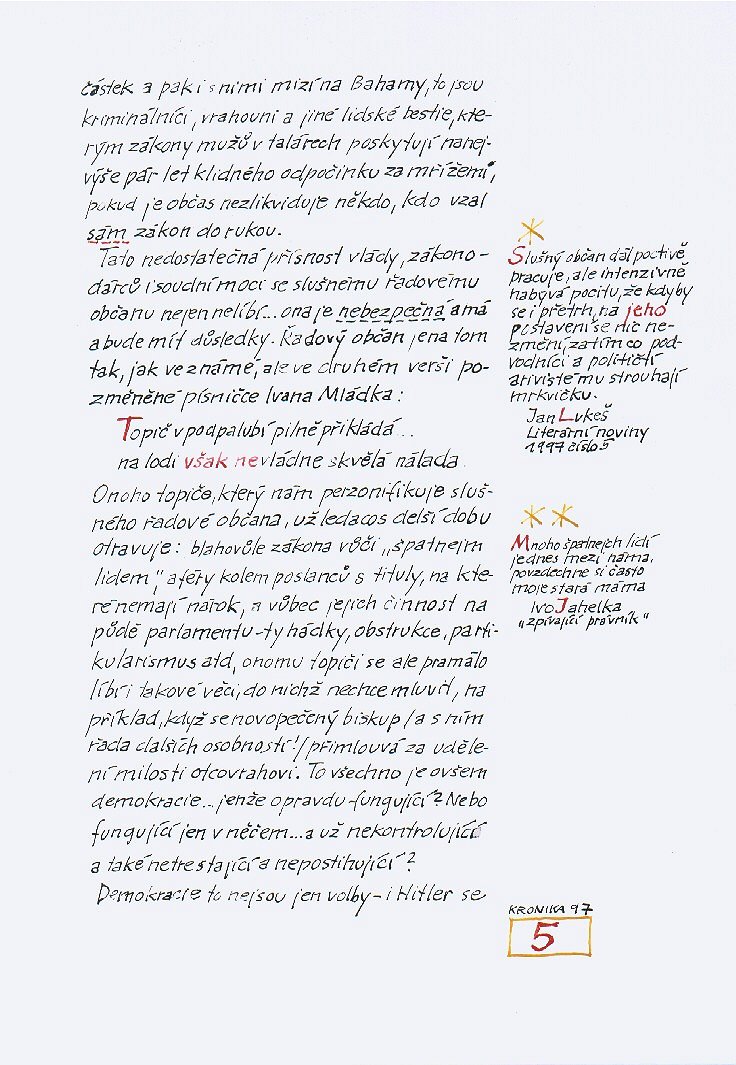 částek a pak i s nimi mizí na Bahamy, to jsou
kriminálníci, vrahouni a jiné lidské bestie, kte-
rým zákony mužů v talárech poskytují nanej-
výše pár let klidného odpočinku za mřížemi,
pokud je občas nezlikviduje někdo, kdo vzal
sám zákon do rukou.
Tato nedostatečná přísnost vlády, zákono-
dárců i soudní moci se slušnému řadovému
občanu nejen nelíbí... ona je nebezpečná a má
a bude mít důsledky. Řadový občan je na tom
tak, jak ve známé, ale ve druhém verši po-
změněné písničce Ivana Mládka:
Topič v podpalubí pilně přikládá..
na lodi však nevládne skvělá nálada.
Onoho topiče, který nám perzonifikuje sluš-
ného řadové občana, už ledacos delší dobu
otravuje: blahovůle zákona vůči „špatnejm
lidem", aféry kolem poslanců s tituly, na kte-
ré nemají nárok, a vůbec jejich činnost na
půdě parlamentu - ty hádky, obstrukce, parti-
kularismus atd, onomu topiči se ale pramálo
líbí i takové věci, do nichž nechce mluvit, na
příklad, když se novopečený biskup /a s ním
řada dalších osobností!/ přimlouvá za uděle-
ní milosti otcovrahovi. To všechno je ovšem
demokracie... jenže opravdu - fungující? Nebo
fungující jen v něčem... a už nekontrolující
a také netrestající a nepostihující?
Demokracie to nejsou jen volby - i Hitler se
*
Slušný občan dál poctivě
pracuje, ale intenzivně
nabývá pocitu, že kdyby
se i přetrh, na jeho
postavení se nic ne-
změní, zatím co pod-
vodníci a političtí
arivisté mu strouhají
mrkvičku.
Jan Lukeš
Literární noviny
1997 číslo 5
**
Mnoho špatnejch lidí
jednes mezi náma,
povzdechne si často
moje stará máma
Ivo Jahelka
„zpívající právník"
KRONIKA 97
5